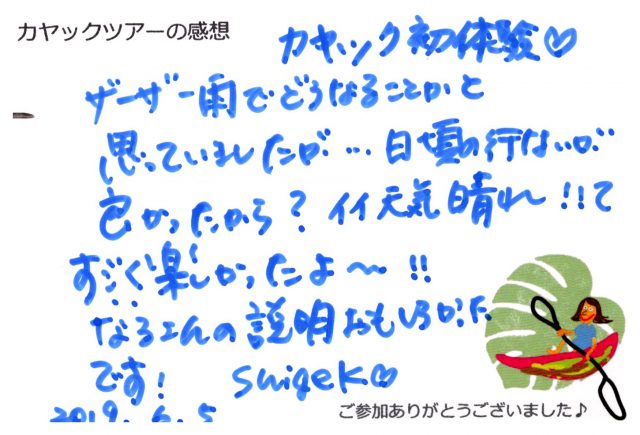 カヤックツアーの感想
カヤック初体験♡
ザーザー雨でどうなることかと
思っていましたが…日頃の行ないが
良かったから？イイ天気晴れ!!て
すごく楽しかったよ〜!!
なるさんの説明おもしろかった
です！ Suigek♡
2019.6.5
ご参加ありがとうございました♪